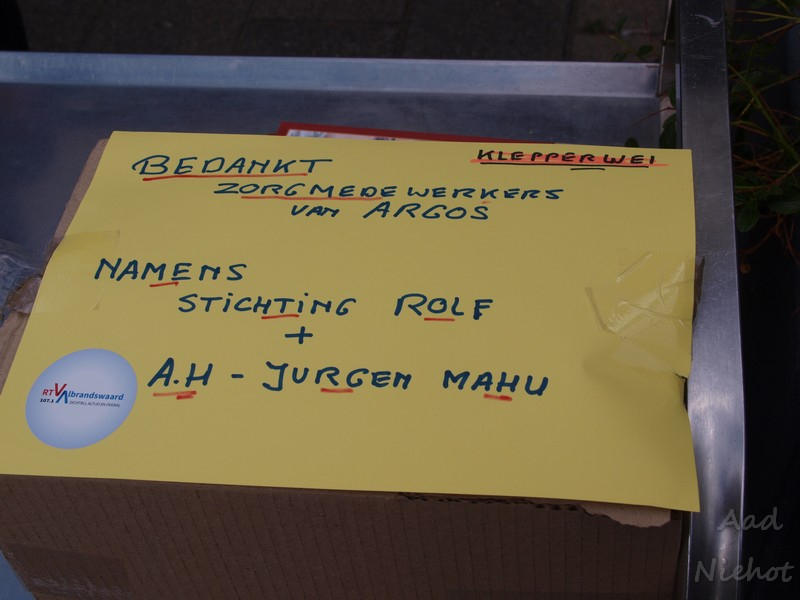 KLEPPERWEI
BEDANKT
ZORGMEDEWERKERS
VAN ARGOS
NAMENS
STICHTING ROLF
+
A.H - JURGEN MAHU
RTV Albrandswaard
107.1
Aad
Niehot